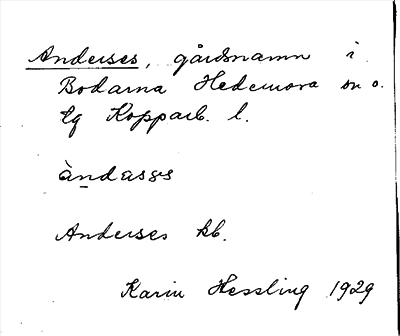 Anderses, gårdsnamn i
Bodarna Hedemora sn o.
tg Kopparb. l.
àndasəs
Anderses kb.
Karin Hessling 1929